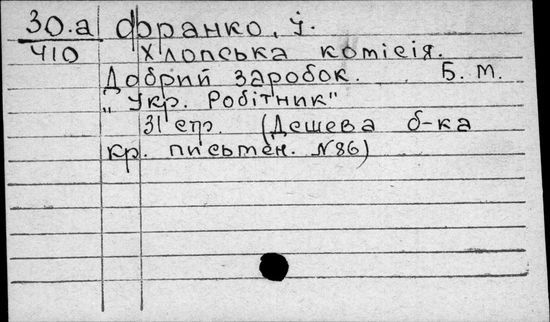 30.а Франко, І.
410 Хлопська комісія.
Добрий заробок. Б. м.
"Укр. Робітник"
31 стр. (Дешева б-ка
кр. письмен. №86)